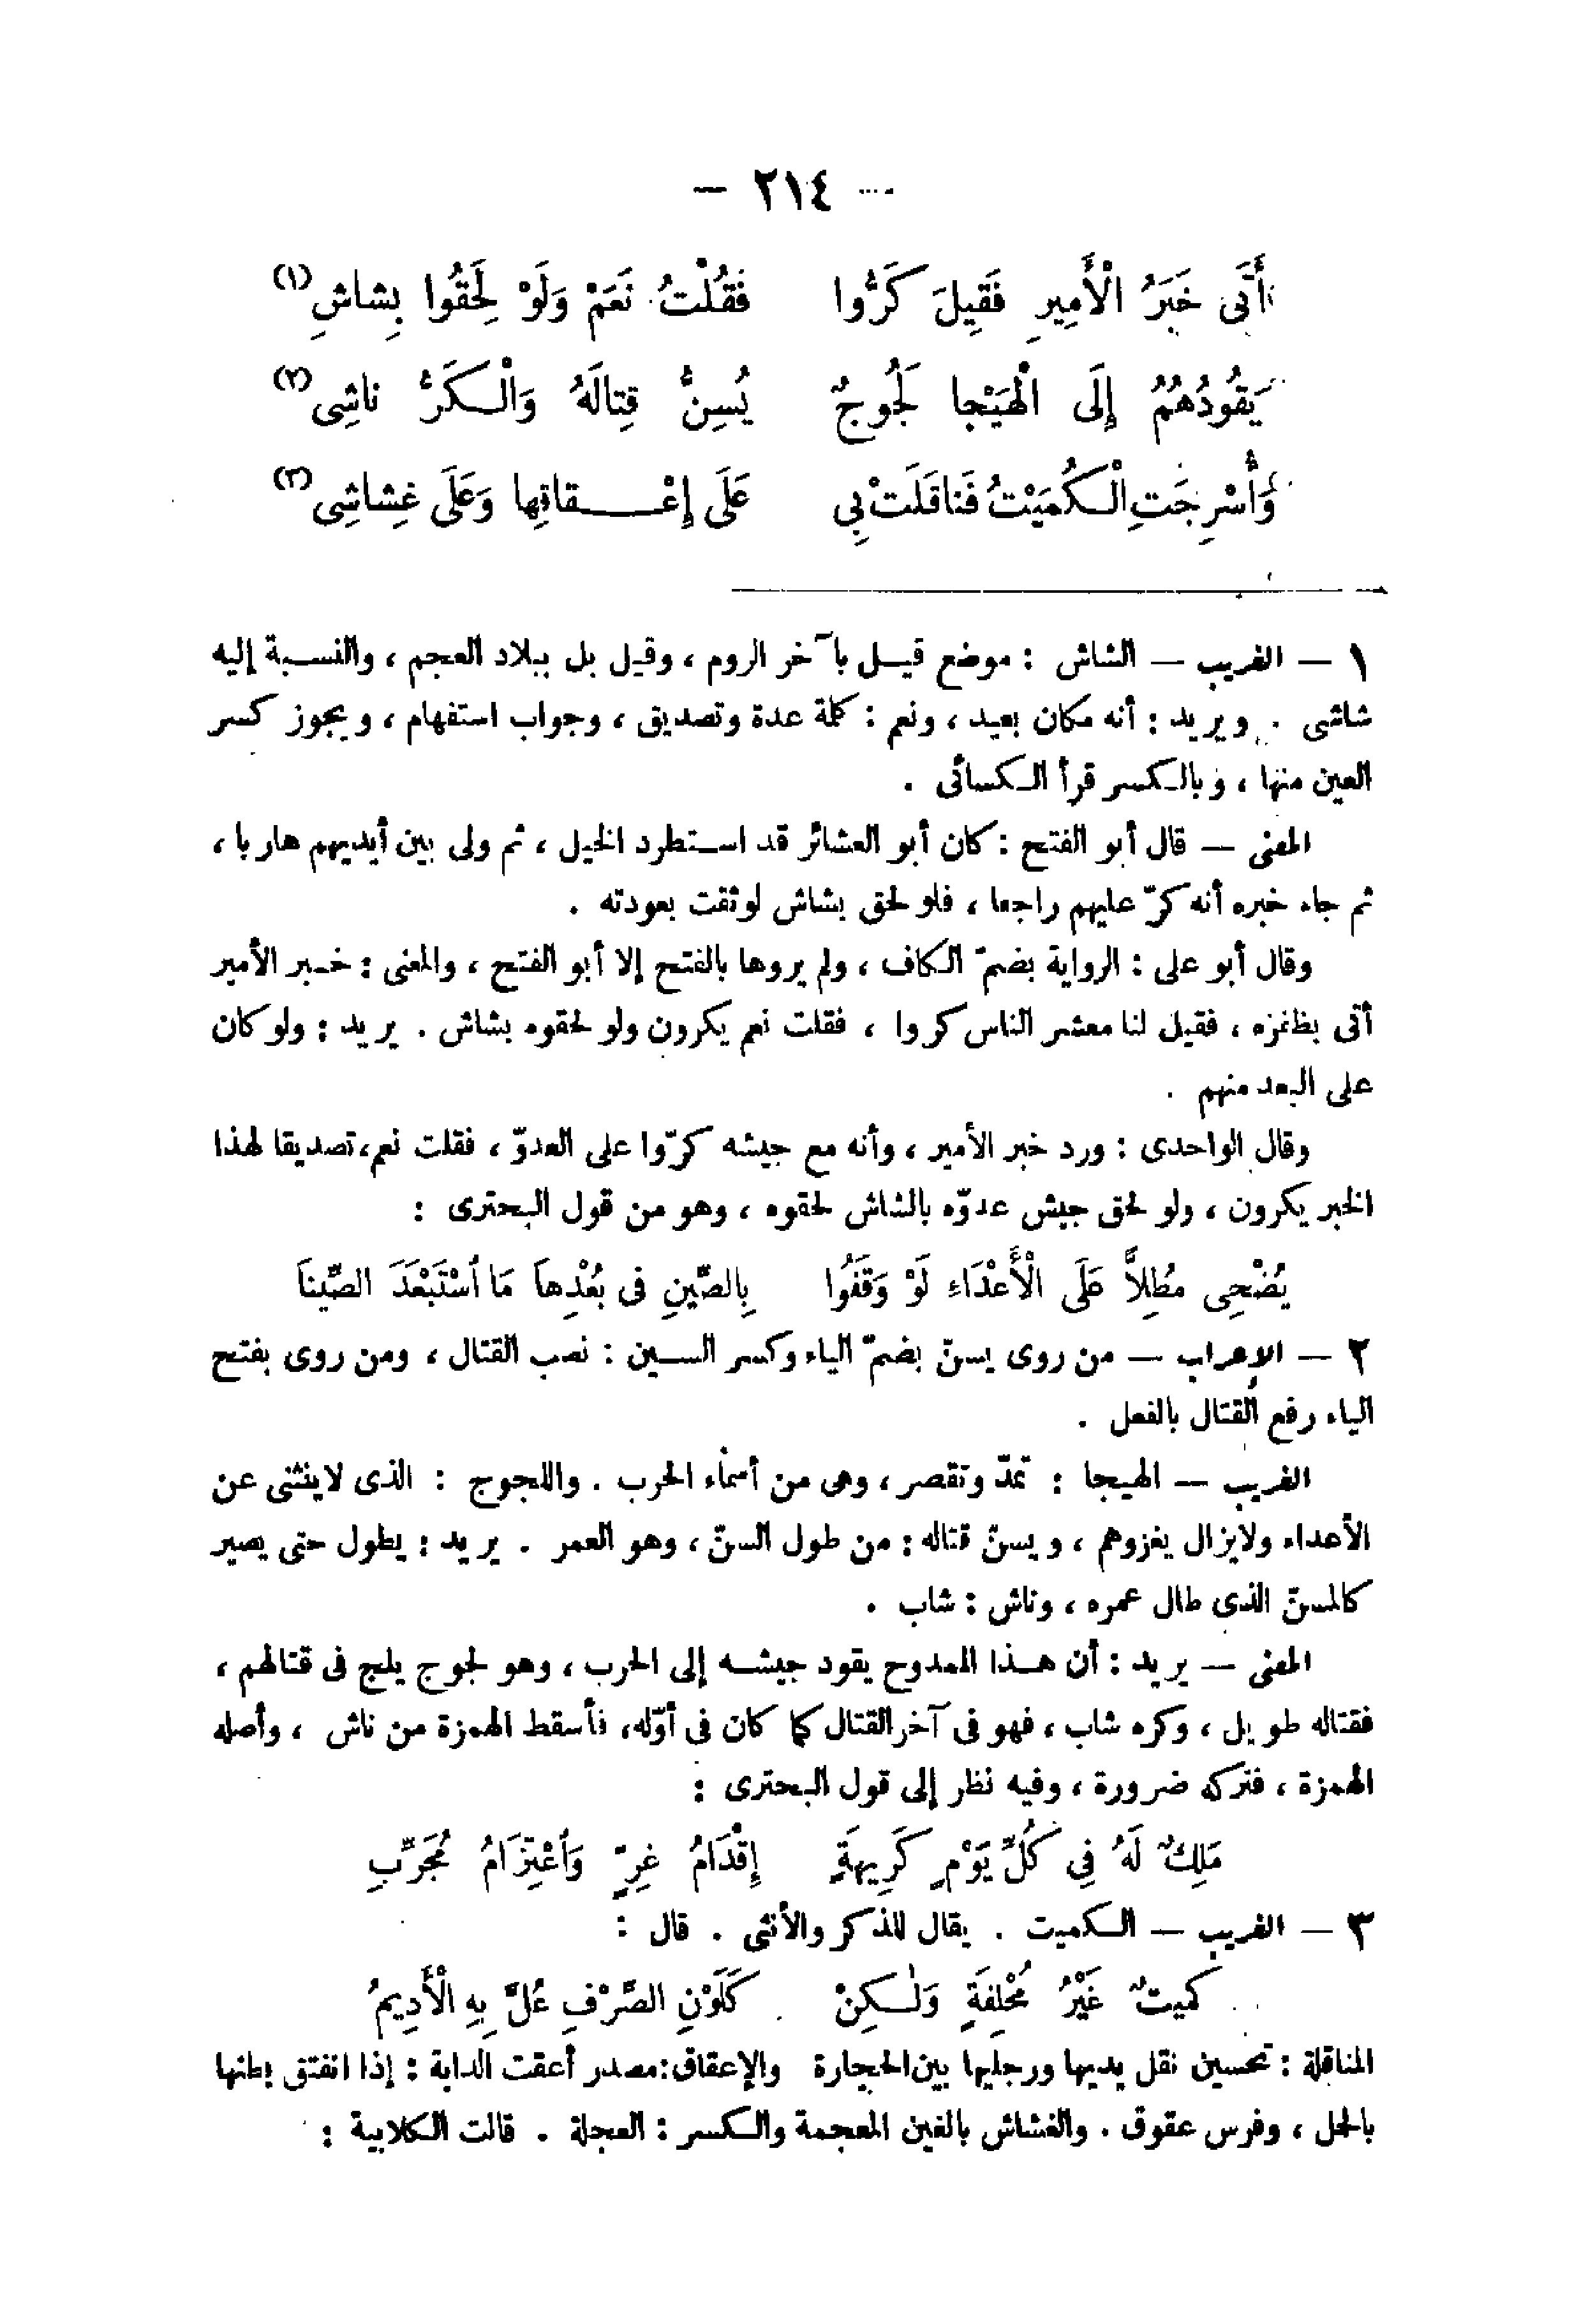 — ٢١٤ —
أَتَى خَبَرُ الْأَمِيرِ فَقِيلَ كَرُّوا فَقُلْتُ نَعَمْ وَلَوْ لَحِقُوا بِشاشِ (١)
يَقُودُهُمُ إِلَى الْهَيْجا لَجُوجٌ يُسِنُّ قِتالَهُ وَالْكَرُّ ناشِى (٢)
وَأُسْرِجَتِ الْكُمَيْتُ فَناقَلَتْ بِى عَلَى إِعْقاقِها وَعَلَى غِشاشِى (٣)
١ — الغريب — الشاش : موضع قيل بآخر الروم ، وقيل بل ببلاد العجم ، والنسبة إليه
شاشى . ويريد : أنه مكان بعيد ، ونعم : كلمة عدة وتصديق ، وجواب استفهام ، ويجوز كسر
العين منها ، وبالكسر قرأ الكسائى .
المعنى — قال أبو الفتح : كان أبو العشائر قد استطرد الخيل ، ثم ولى بين أيديهم هاربا ،
ثم جاء خبره أنه كرّ عليهم راجعا ، فلو لحق بشاش لوثقت بعودته .
وقال أبو على : الرواية بضمّ الكاف ، ولم يروها بالفتح إلا أبو الفتح ، والمعنى : خبر الأمير
أتى بظفره ، فقيل لنا معشر الناس كروا ، فقلت نعم يكرون ولو لحقوه بشاش . يريد : ولو كان
على البعد منهم .
وقال الواحدى : ورد خبر الأمير ، وأنه مع جيشه كرّوا على العدوّ ، فقلت نعم، تصديقا لهذا
الخبر يكرون ، ولو لحق جيش عدوّه بالشاش لحقوه ، وهو من قول البحترى :
يُضْحِى مُطِلاًّ عَلَى الْأَعْدَاءِ لَوْ وَقَفُوا بِالصِّينِ فى بُعْدِهاَ مَا اسْتَبْعَدَ الصِّيناَ
٢ — الإعراب — من روى يسنّ بضمّ الياء وكسر السين : نصب القتال ، ومن روى بفتح
الياء رفع القتال بالفعل .
الغريب — الهيجا : تمدّ وتقصر ، وهى من أسماء الحرب . واللجوج : الذى لاينثنى عن
الأعداء ولايزال يغزوهم ، ويسنّ قتاله : من طول السنّ ، وهو العمر . يريد : يطول حتى يصير
كالمسنّ الذى طال عمره ، وناش : شاب .
المعنى — يريد : أن هذا الممدوح يقود جيشه إلى الحرب ، وهو لجوج يلج فى قتالهم ،
فقتاله طويل ، وكره شاب ، فهو فى آخر القتال كما كان فى أوّله، فأسقط الهمزة من ناش ، وأصله
الهمزة ، فتركه ضرورة ، وفيه نظر إلى قول البحترى :
مَلِكٌ لَهُ فِى كُلِّ يَوْمِ كَرِيهَةٍ إِقْدَامُ غِرٍّ وَاعْتِزَامُ مُجَرِّبِ
٣ — الغريب — الكميت . يقال للذكر والأنثى . قال :
كميتٌ غَيْرُ مُحْلِفَةٍ وَلٰكِنْ كَلَوْنِ الصِّرْفِ عُلَّ بِهِ الْأَدِيمُ
المناقلة : تحسين نقل يديها ورجليها بين الحجارة والإعقاق: مصدر أعقت الدابة : إذا انفتق بطنها
بالحمل ، وفرس عقوق . والغشاش بالغين المعجمة والكسر : العجلة . قالت الكلابية :